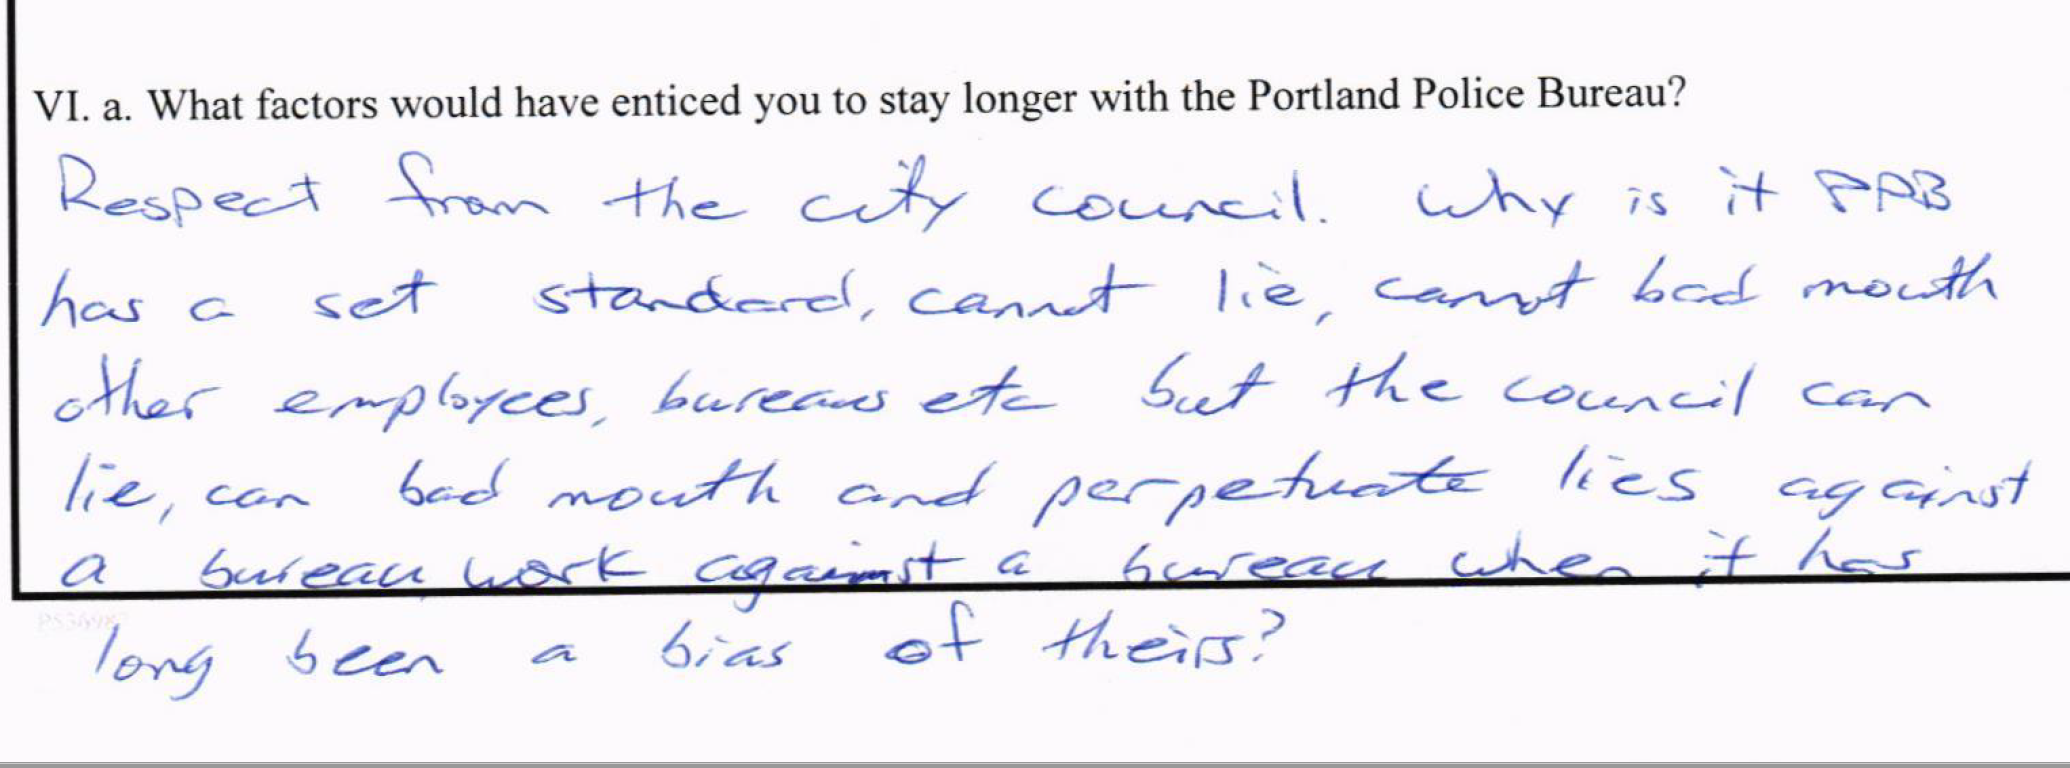 VI. a. What factors would have enticed you to stay longer with the Portland Police Bureau?
Respect from the city council. Why is it PPB
has a set standard, cannot lie, cannot bad mouth
other employees, bureaus etc but the council can
lie, can bad mouth and perpetuate lies against
a bureau, work against a bureau when it has
long been a bias of theirs?